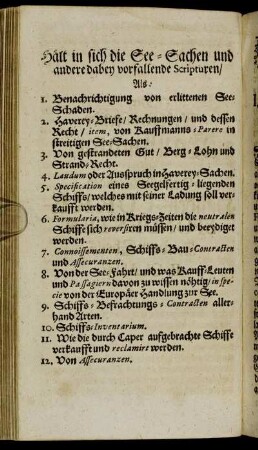 Hält in sich die See-Sachen und
andere dabey vorfallende Scripturen/
Als:
1. Benachrichtigung von erlittenen See-
Schaden.
2. Haverey-Briefe/ Rechnungen/ und dessen
Recht/ item, von Kauffmanns-Parere in
streitigen See-Sachen.
3. Von gestrandeten Gut/ Berg-Lohn und
Strand-Recht.
4. Laudum oder Ausspruch in Haverey-Sachen.
5. Specification eines Seegelfertig-liegenden
Schiffs/ welches mit seiner Ladung soll ver-
kaufft werden.
6. Formularia, wie in Kriegs-Zeiten die neutralen
Schiffe sich reversiren müssen/ und beeydiget
werden.
7. Connoissementen, Schiffs-Bau-Contracten
und Assecuranzen.
8. Von der See-Fahrt/ und was Kauff-Leuten
und Passagiern davon zu wissen nöhtig/ in spe-
cie von der Europäer Handlung zur See.
9. Schiffs-Befrachtungs-Contracten aller-
hand Arten.
10. Schiffs-Inventarium.
11. Wie die durch Caper aufgebrachte Schiffe
verkaufft und reclamirt werden.
12. Von Assecuranzen.